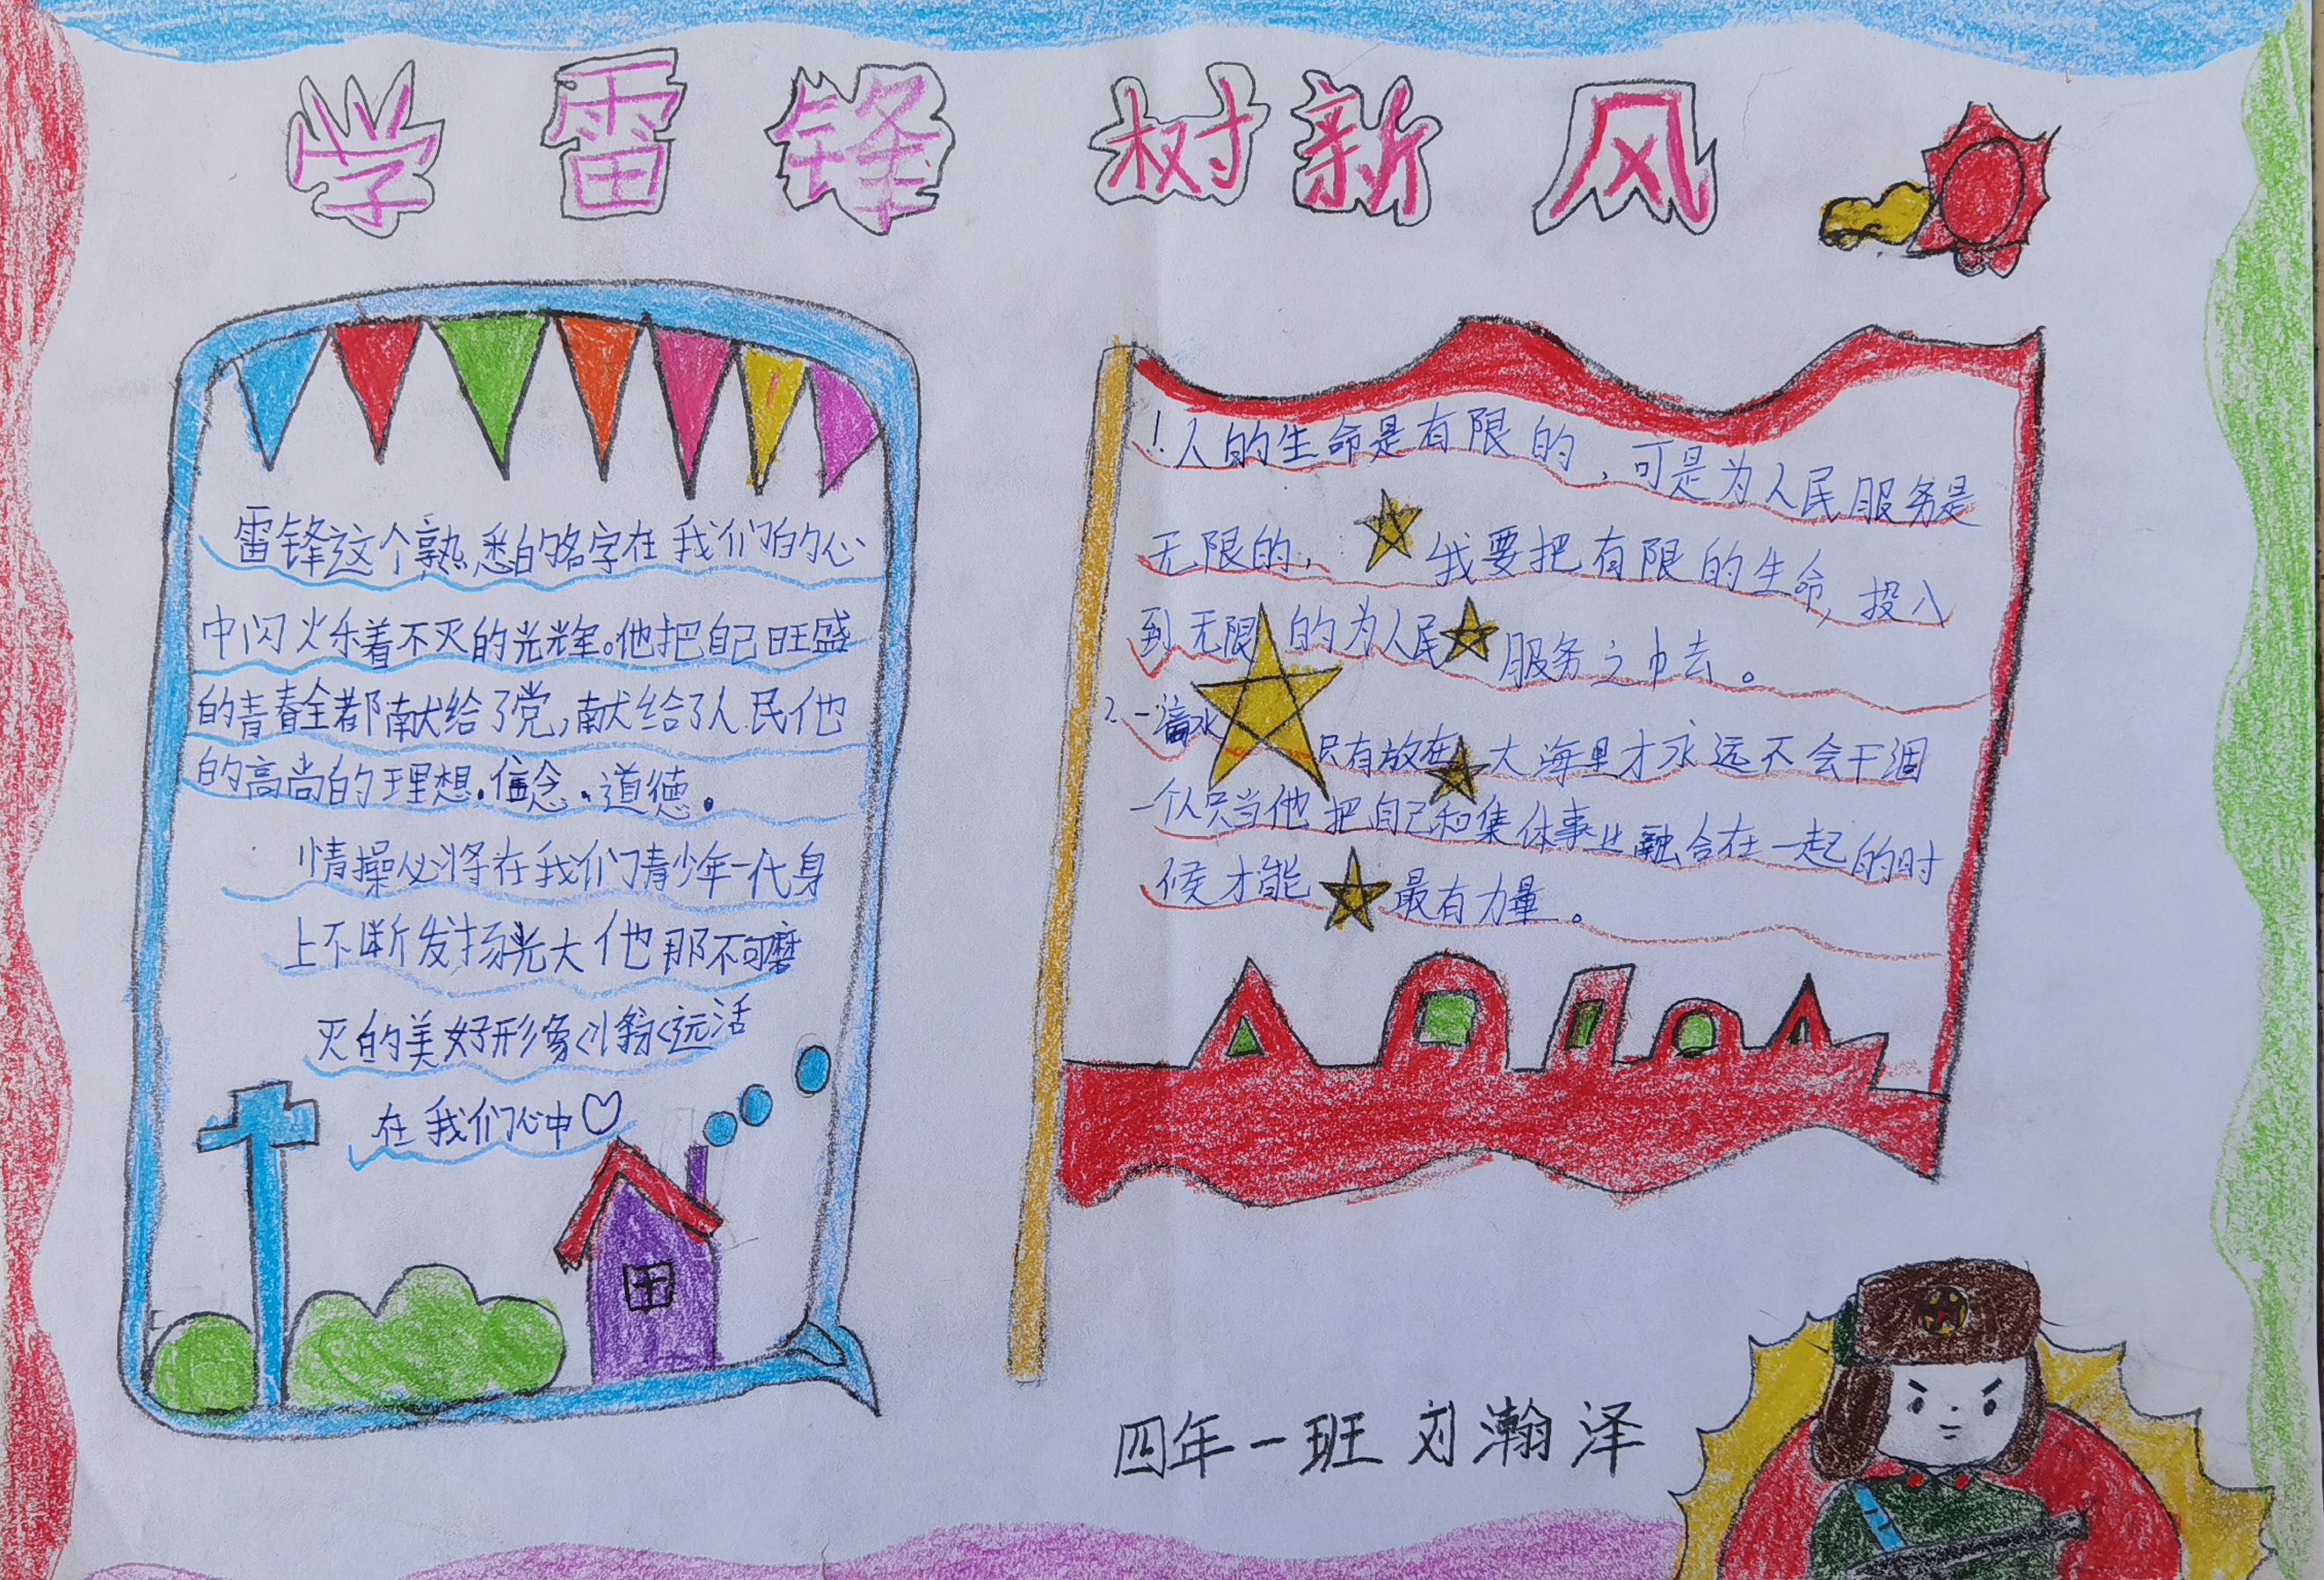 学雷锋 树新风
雷锋这个熟悉的名字在我们的心
中闪烁着不灭的光辉。他把自己旺盛
的青春全都献给了党,献给了人民他
的高尚的理想.信念.道德.
情操必将在我们青少年一代身
上不断发扬光大他那不可磨
灭的美好形象永远活
在我们心中♡
1.人的生命是有限的,可是为人民服务是
无限的,我要把有限的生命,投入
到无限的为人民服务之中去。
2.一滴水只有放在大海里才永远不会干涸
一个人只当他把自己和集体事业融合在一起的时
候才能最有力量。
四年一班 刘瀚泽